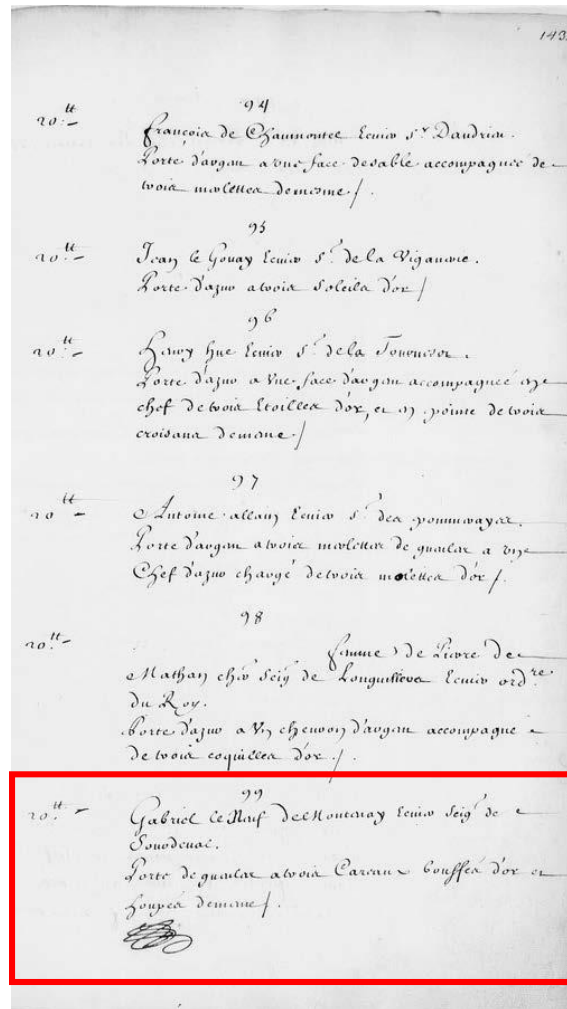 143
94
20.tt
François de Chaumontel Ecuier sr Dandrieu.
Porte d'argent a une face de sable accompagnée de
trois molettes de mesme /.
95
20.tt
Jean le Gouay Ecuier sr. de la
Porte d'azur a trois Soleils d'or /
96
20.tt
Hervy hue Ecuier sr. de la
Porte d'azur a Une face d'argent accompagnée en
chef de trois Etoilles d'or, et en pointe de trois
croissans de mesme /
97
20.tt
Antoine allain Ecuier sr. des
Porte d'argent a trois molettes de gueules a un
Chef d'azur chargé de trois molettes d'or /.
98
20.tt
femme de Pierre de
Mathan cher Seigr de Ecuier ordre
du Roy.
Porte d'azur a Un chevron d'argent accompagné
de trois coquilles d'or /.
99
20.tt
Gabriel le Neuf de Montenay Ecuier Seigr de
Sourdeval.
Porte de gueules a trois Careaux bouffés d'or et
houpés de mesme /.